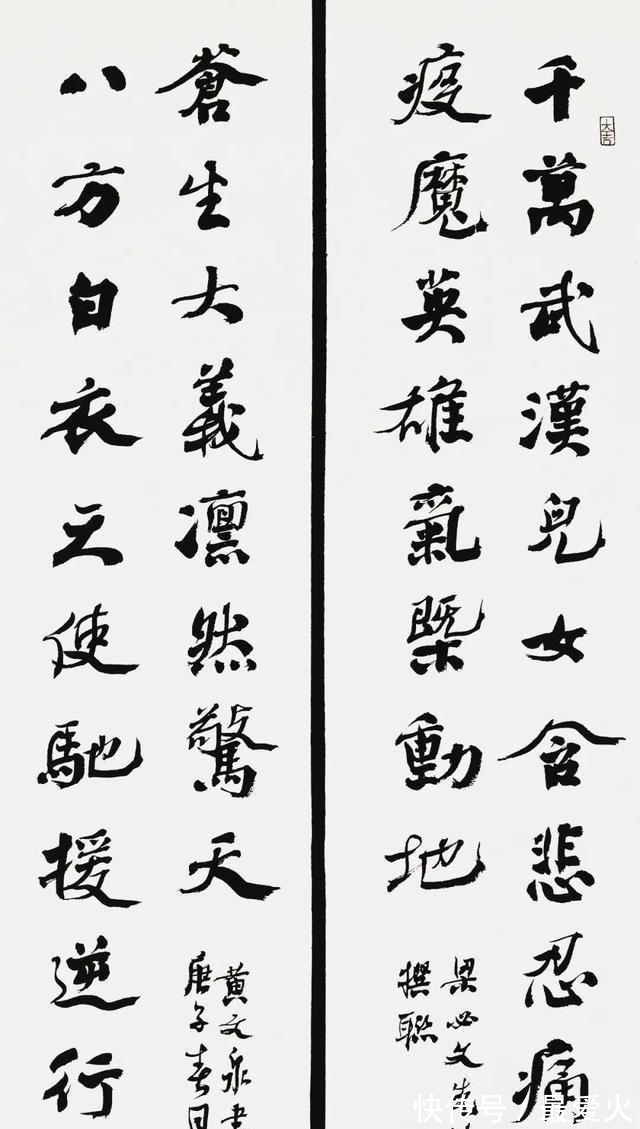 大吉
千萬武漢兒女含悲忍痛
疫魔英雄氣槩動地
梁必文先
撰聯
八方白衣天使馳援逆行
蒼生大義凛然驚天
庚子春日
黃文泉書
快传号/最爱火